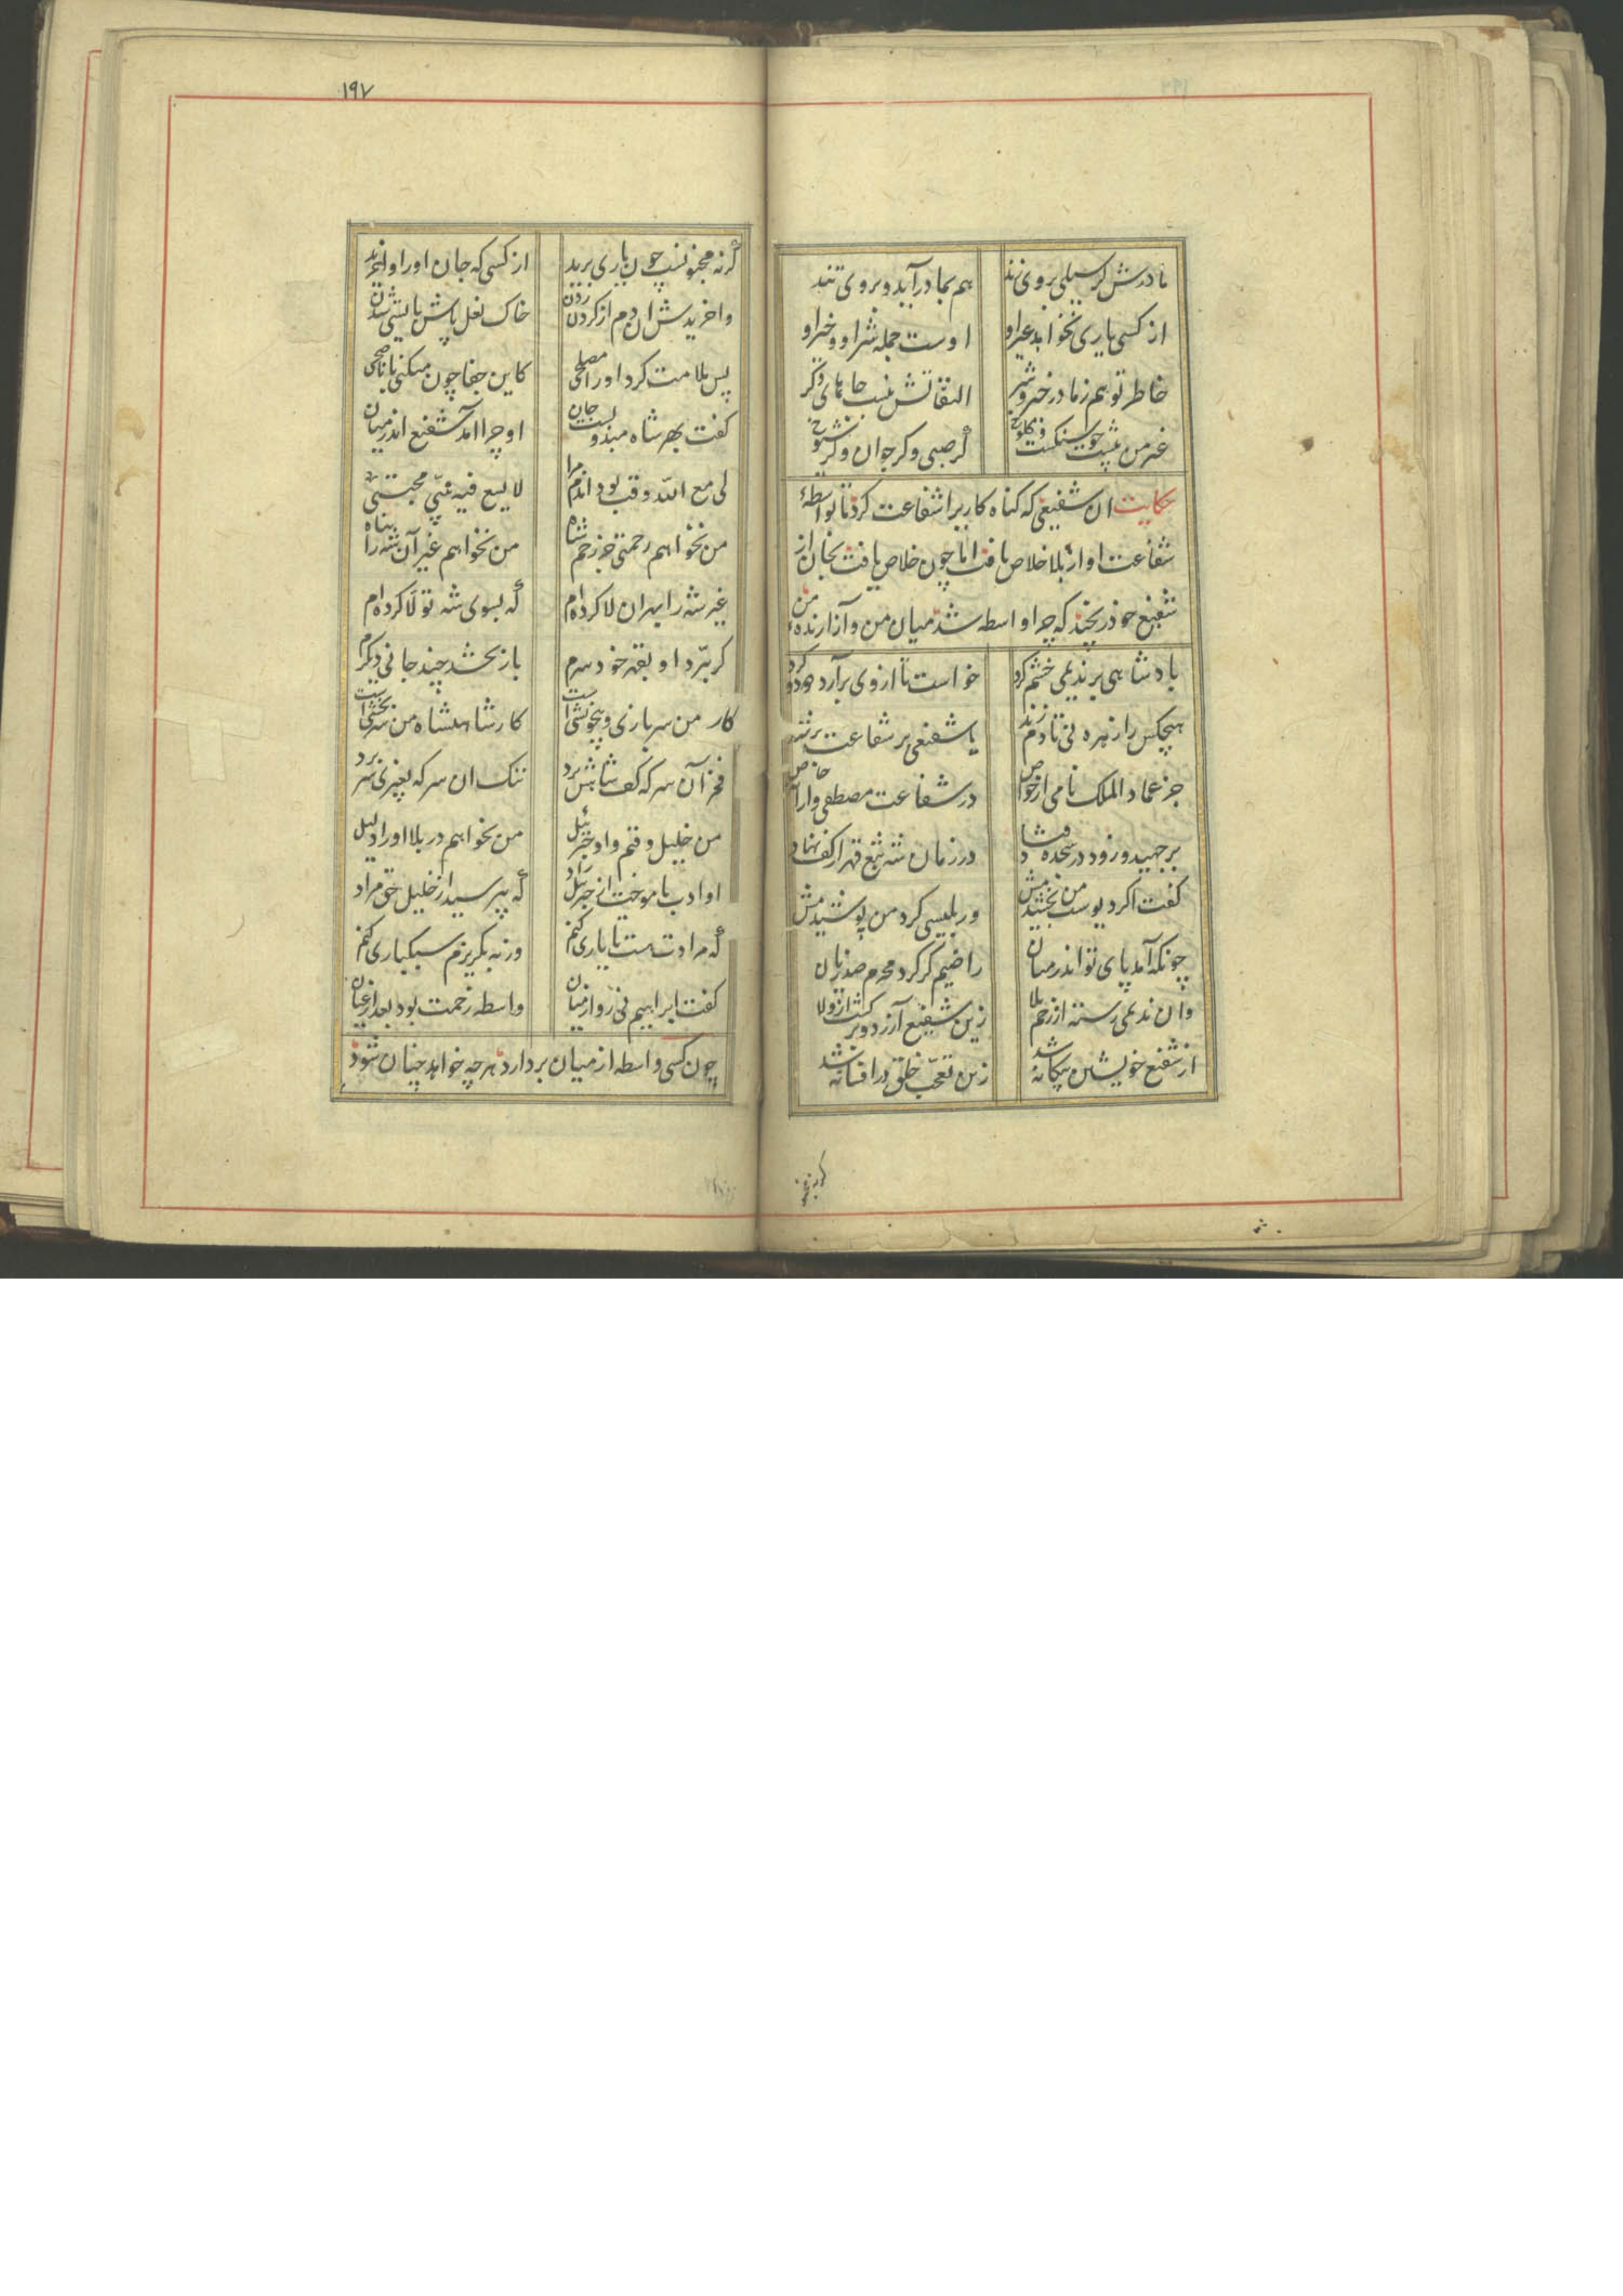 مادرش گر سیلی بروی زند هم بمادر آید و بروی تند
از کسی یاری نخواهد غیر او اوست جمله شر او و خیر او
خاطر تو هم زما در خیر و شر التفاتش نیست جاهای دگر
غیر من پیشت چو سنگست و کلوخ گر صبی و گر جوان و گر شیوخ
حکایت ان شفیعی که کناه کاریرا شفاعت کرد تا بواسطهٔ
شفاعت او از بلا خلاص یافت اما چون خلاص یافت بجان از
شفیع خود رنجید که چرا واسطه شد میان من و آزارندهٔ من
پادشاهی بر ندیمی خشم کرد خواست تا از وی برآرد دود و کرد
هیچکس را زهره نی تا دم زند یا شفیعی بر شفاعت بر تند
جز عماد الملک نامی از خواص در شفاعت مصطفی وارانه خاص
برجهید و زود در سجده فتاد در زمان شه تیغ قهر از کف نهاد
کفت اکر دیوست من بخشیدمش ور بلیسی کرد من پوشیدمش
چونکه آمد پای تو اندر میان راضیم گر کرد مجرم صد زیان
وان ندیمی رسته از زخم بلا زین شفیع آزرد و بر کشت از ولا
از شفیع خویشتن بیکانه شد زین تعجب خلق در افسانه شد
۱۹۷
گر نه مجنونست چون یاری برید از کسی که جان او را واخرید
واخریدش ان دم از کردن زدن خاک نعل پاش بایستی شدن
پس ملامت کرد او را مصلحی کاین جفا چون میکنی با ناصحی
کفت بهر شاه مبذولست جان او چرا امد شفیع اندر میان
لی مع الله وقت بود اندم مرا لا یسع فیه نبیّ مجتبی
من نخواهم رحمتی جز زخم شاه من نخواهم غیر آن شه را پناه
غیر شه را بهر ان لا کرده ام که بسوی شه تولّا کرده ام
کر ببرّد او بقهر خود سرم باز بخشد چند جانی دیکرم
کار من سربازی و بیخویشی است کار شاهنشاه من سر بخشی است
فخر آن سر که کف شاهش برد ننک ان سر که بغیری سر برد
من خلیل وقتم و او جبرئیل من نخواهم در بلا او را دلیل
او ادب ناموخت از جبریل راد که بپرسید از خلیل حق مراد
که مرادت هست تا یاری کنم ورنه بکریزم سبکباری کنم
کفت ابراهیم نی رو از میان واسطه زحمت بود بعد از عیان
چون کسی واسطه از میان بردارد هر چه خواهد چنان شود